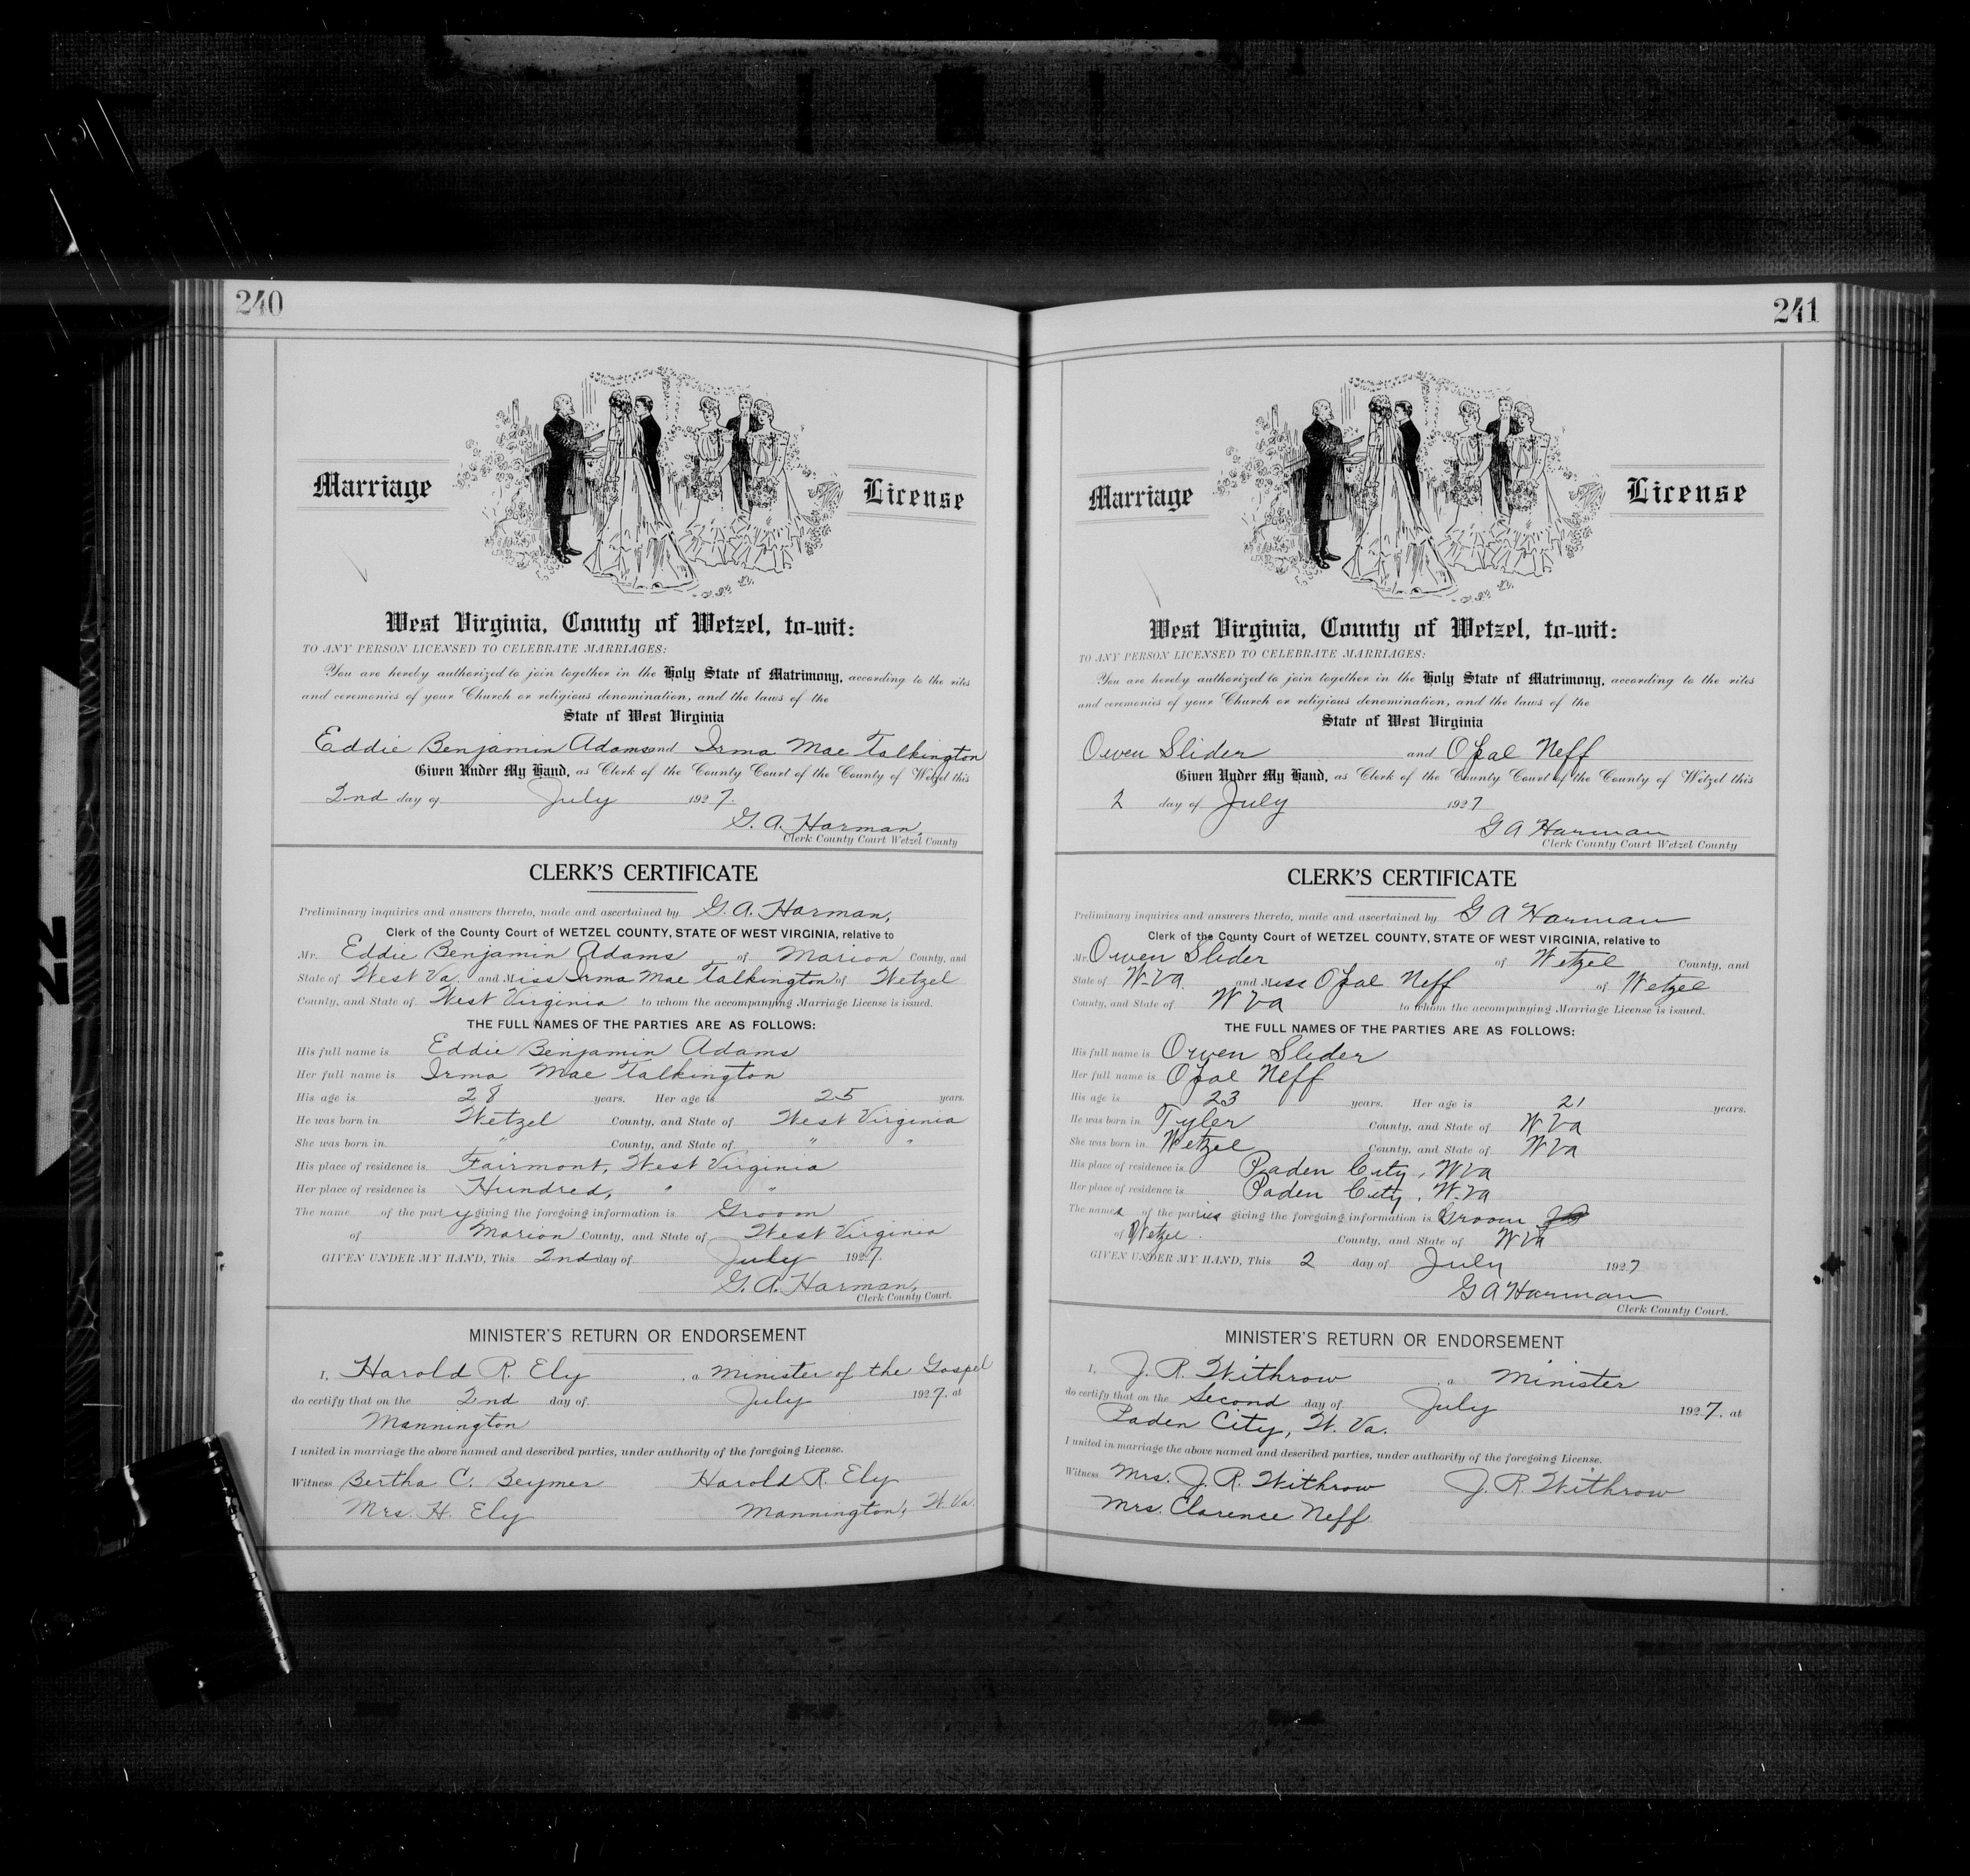 240
Marriage License
West Virginia, County of Wetzel, to-wit:
TO ANY PERSON LICENSED TO CELEBRATE MARRIAGES:
You are hereby authorized to join together in the Holy State of Matrimony, according to the rites
and ceremonies of your Church or religious denomination, and the laws of the
State of West Virginia
Eddie Benjamin Adams and Irma Mae Talkington
Given Under My Hand, as Clerk of the County Court of the County of Wetzel this
2nd day of July 1927.
G. A. Harman,
Clerk County Court Wetzel County
CLERK'S CERTIFICATE
Preliminary inquiries and answers thereto, made and ascertained by G. A. Harman,
Clerk of the County Court of WETZEL COUNTY, STATE OF WEST VIRGINIA, relative to
Mr. Eddie Benjamin Adams of Marion County, and
State of West Va. and Miss Irma Mae Talkington of Wetzel
County, and State of West Virginia to whom the accompanying Marriage License is issued.
THE FULL NAMES OF THE PARTIES ARE AS FOLLOWS:
His full name is Eddie Benjamin Adams
Her full name is Irma Mae Talkington
His age is 28 years. Her age is 25 years.
He was born in Wetzel County, and State of West Virginia
She was born in " County, and State of " "
His place of residence is Fairmont, West Virginia
Her place of residence is Hundred, " "
The name of the party giving the foregoing information is Groom
of Marion County, and State of West Virginia
GIVEN UNDER MY HAND, This 2nd day of July 1927.
G. A. Harman,
Clerk County Court.
MINISTER'S RETURN OR ENDORSEMENT
I, Harold R. Ely, a minister of the Gospel
do certify that on the 2nd day of July 1927. at
Mannington
I united in marriage the above named and described parties, under authority of the foregoing License.
Witness Bertha C. Beymer Harold R. Ely
Mrs. H. Ely Mannington, W. Va.
241
Marriage License
West Virginia, County of Wetzel, to-wit:
TO ANY PERSON LICENSED TO CELEBRATE MARRIAGES:
You are hereby authorized to join together in the Holy State of Matrimony, according to the rites
and ceremonies of your Church or religious denomination, and the laws of the
State of West Virginia
Owen Slider and Opal Neff
Given Under My Hand, as Clerk of the County Court of the County of Wetzel this
2 day of July 1927
G A Harman
Clerk County Court Wetzel County
CLERK'S CERTIFICATE
Preliminary inquiries and answers thereto, made and ascertained by G A Harman
Clerk of the County Court of WETZEL COUNTY, STATE OF WEST VIRGINIA, relative to
Mr. Owen Slider of Wetzel County, and
State of W-Va. and Miss Opal Neff of Wetzel
County, and State of W Va to whom the accompanying Marriage License is issued.
THE FULL NAMES OF THE PARTIES ARE AS FOLLOWS:
His full name is Owen Slider
Her full name is Opal Neff
His age is 23 years. Her age is 21 years.
He was born in Tyler County, and State of W Va
She was born in Wetzel County, and State of W Va
His place of residence is Paden City, W Va
Her place of residence is Paden City, W-Va
The names of the parties giving the foregoing information is Groom
of Wetzel County, and State of W Va
GIVEN UNDER MY HAND, This 2 day of July 1927
G A Harman
Clerk County Court.
MINISTER'S RETURN OR ENDORSEMENT
I, J. R. Withrow, a Minister
do certify that on the Second day of July 1927. at
Paden City, W. Va.
I united in marriage the above named and described parties, under authority of the foregoing License.
Witness Mrs. J. R. Withrow J. R. Withrow
Mrs. Clarence Neff